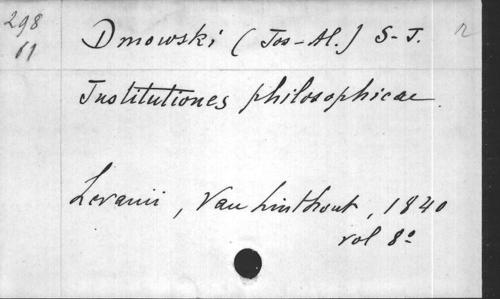 298
11
Dmowski (Jos-Al.) S-J.
Institutiones philosophicae.
Lovanii, Van Linthout, 1840
vol 8º